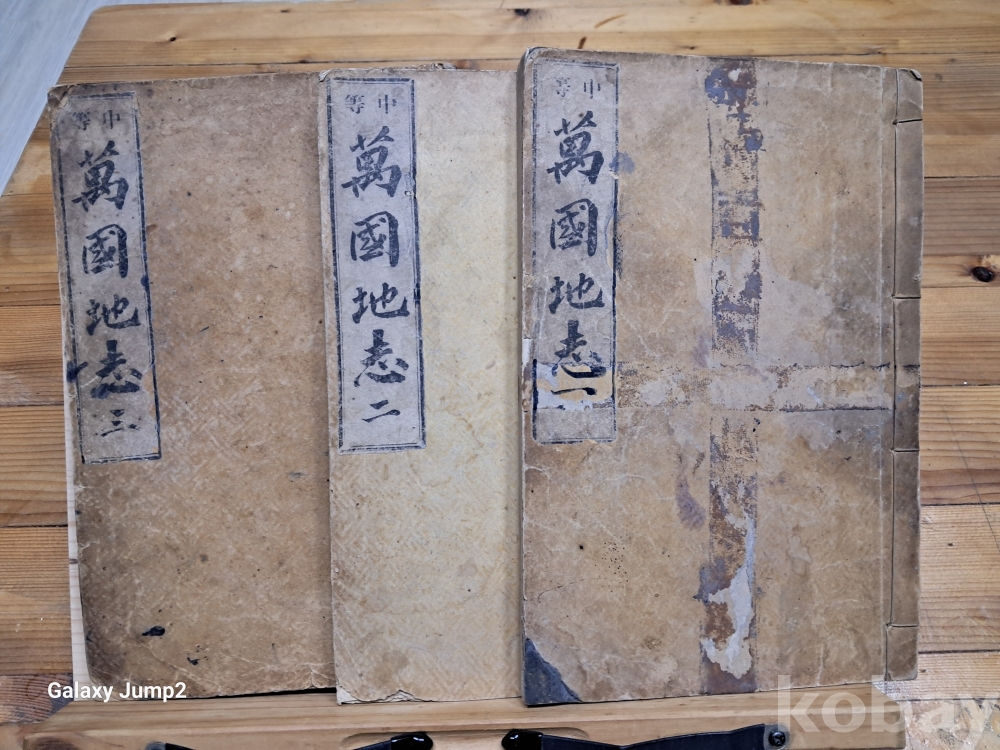 中等
萬國地志
一
中等
萬國地志
二
中等
萬國地志
三
Galaxy Jump2
kobay